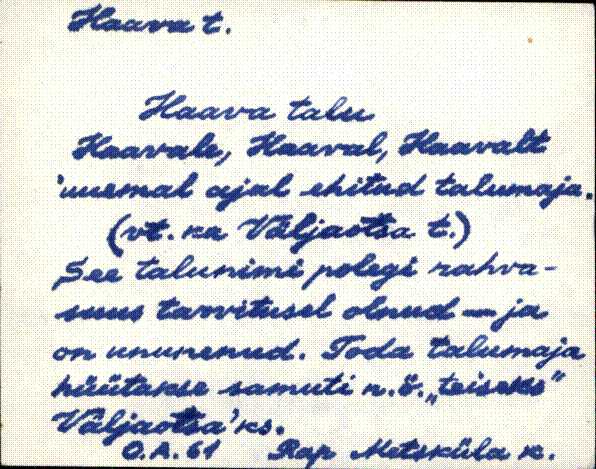 Haava t.
Haava talu
Haavale, Haaval, Haavalt
'uuemal ajal ehitud talumaja.
(vt. ka Väljaotsa t.)
See talunimi polegi rahva-
suus tarvitusel olnud — ja
on ununenud. Toda talumaja
hüütakse samuti n.ö. „teiseks"
Väljaotsa'ks.
O.A. 61 Rap Metsküla k.